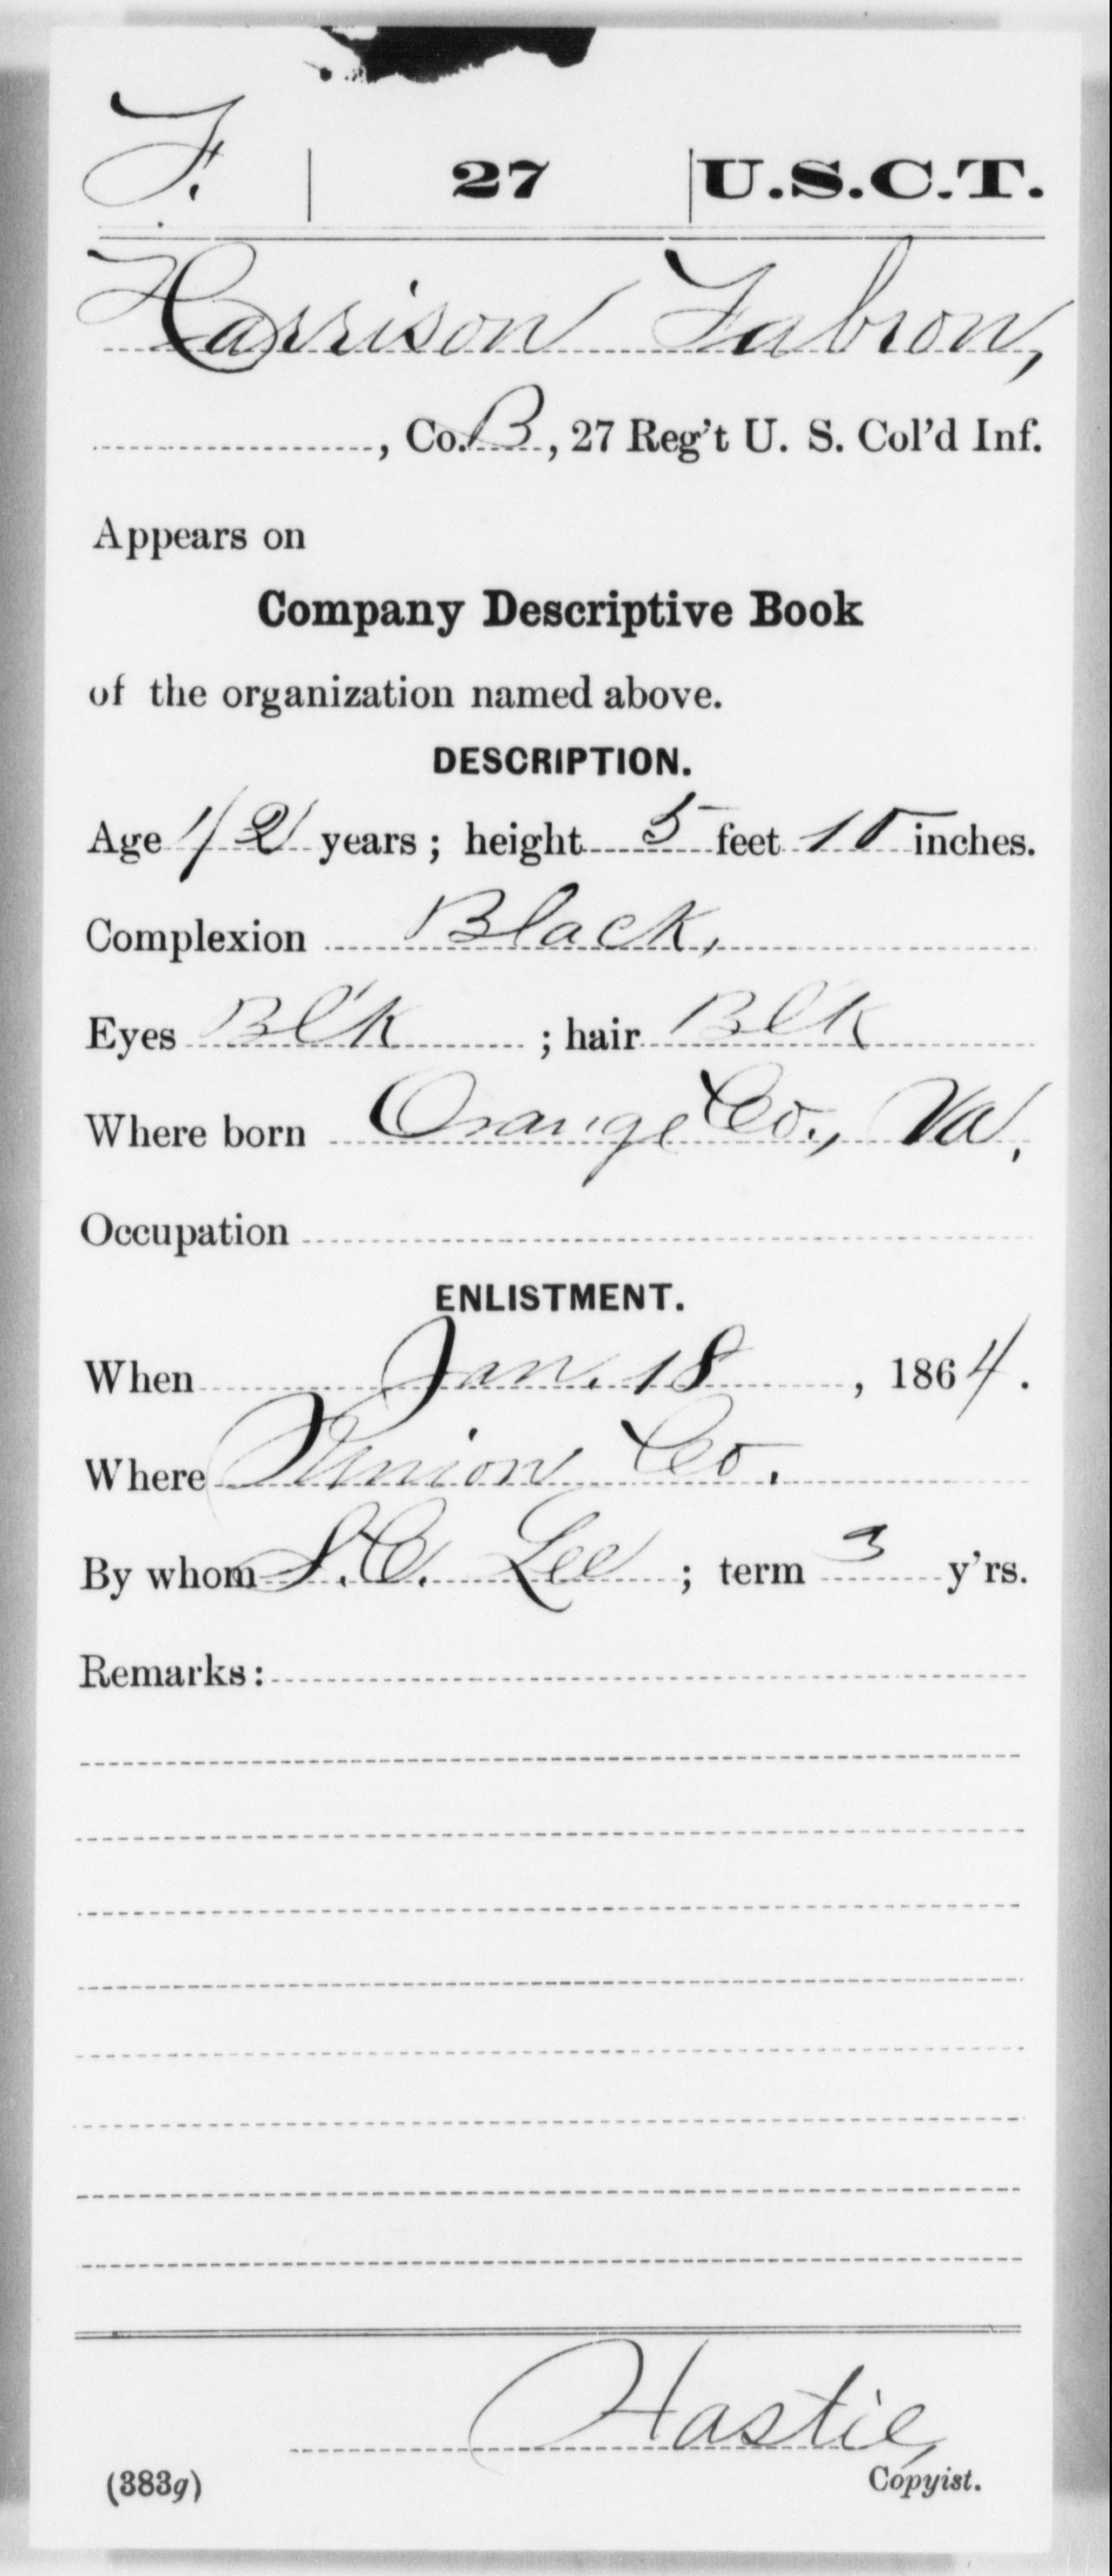 F. | 27 | U.S.C.T.
Harrison Fabron,
, Co. B, 27 Reg't U. S. Col'd Inf.
Appears on
Company Descriptive Book
of the organization named above.
DESCRIPTION.
Age 42 years; height 5 feet 10 inches.
Complexion Black,
Eyes Bl'k ; hair Blk
Where born Orange Co., Va,
Occupation
ENLISTMENT.
When Jan. 18, 1864.
Where Union Co.
By whom S.C. Lee ; term 3 y'rs.
Remarks:
Hastie,
(383g) Copyist.